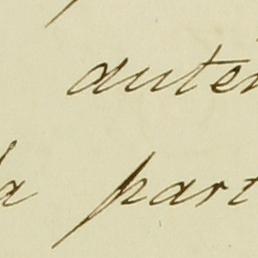 auté
la part